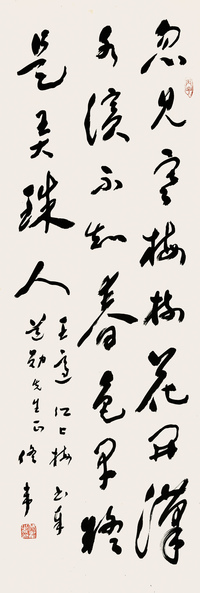 忽见寒梅树花开漢
水濱不知春色早疑
是弄珠人
王適江上梅书奉
道勋先生正修韦